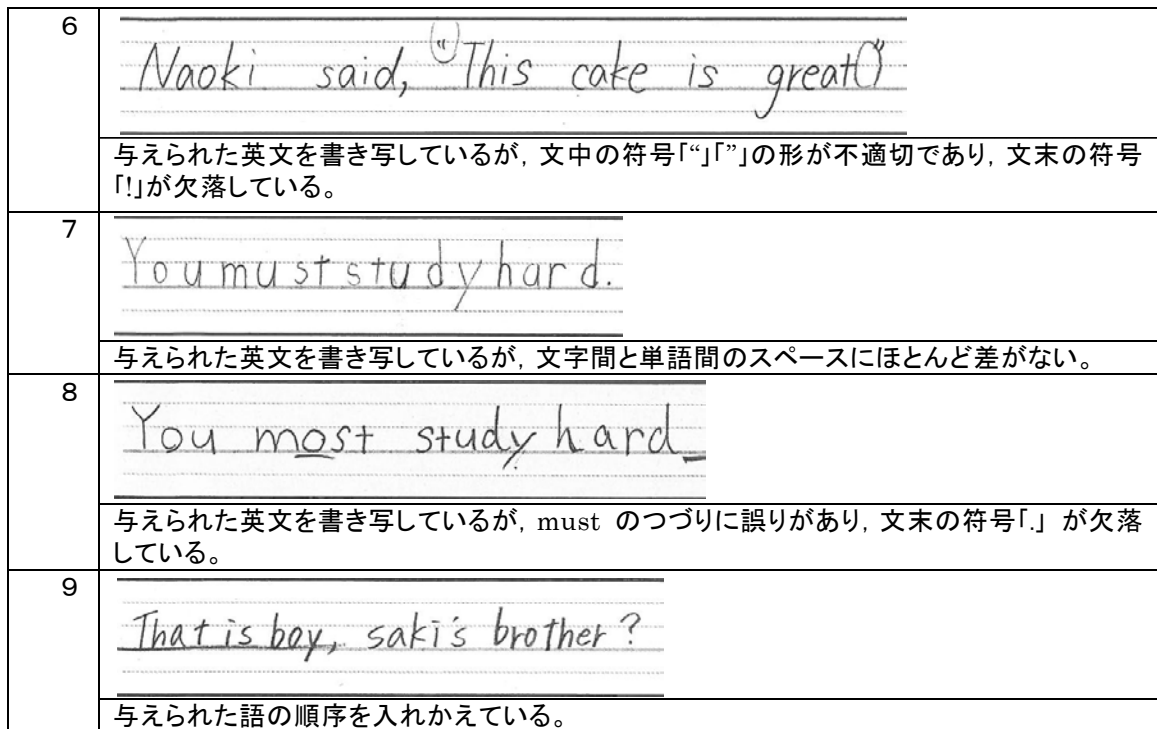 6
Naoki said, “This cake is great”
与えられた英文を書き写しているが，文中の符号「“」「”」の形が不適切であり，文末の符号
「!」が欠落している。
7
You must study hard.
与えられた英文を書き写しているが，文字間と単語間のスペースにほとんど差がない。
8
You most study hard
与えられた英文を書き写しているが，must のつづりに誤りがあり，文末の符号「.」が欠落
している。
9
That is boy, saki's brother?
与えられた語の順序を入れかえている。